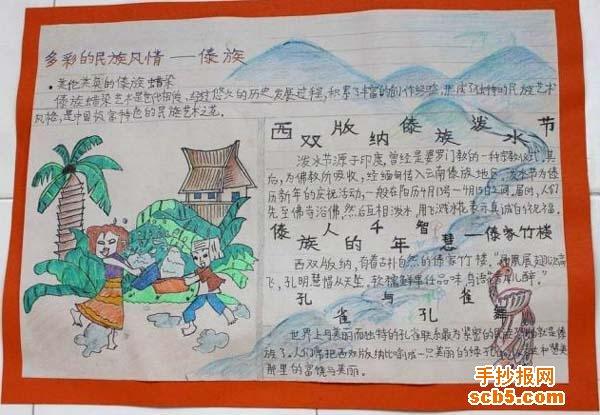 多彩的民族风情——傣族
·美伦美奂的傣族蜡染
傣族蜡染艺术是世代相传,经过悠久的历史发展过程,积累了丰富的创作经验,形成了独特的民族艺术
风格,是中国极富特色的民族艺术之花。
西双版纳傣族泼水节
泼水节源于印度,曾经是婆罗门教的一种宗教仪式。其
后,为佛教所吸收,经缅甸传入云南傣族地区。泼水节为傣
历新年的庆祝活动,一般在阳历4月13号—4月15日之间。届时,人们
先至佛寺浴佛,然后互相泼水,用飞溅水花表示真诚的祝福。
傣族人的千年智慧——傣家竹楼
西双版纳,有着古朴自然的傣家竹楼。
孔明慧惜人天坠
孔雀与孔雀舞
世界上与美丽而独特的孔雀联系最为紧密的民族恐怕就是傣
族了。人们常把西双版纳比喻成一只美丽的绿孔
那里的富饶与美丽。
手抄报网
scb5.com